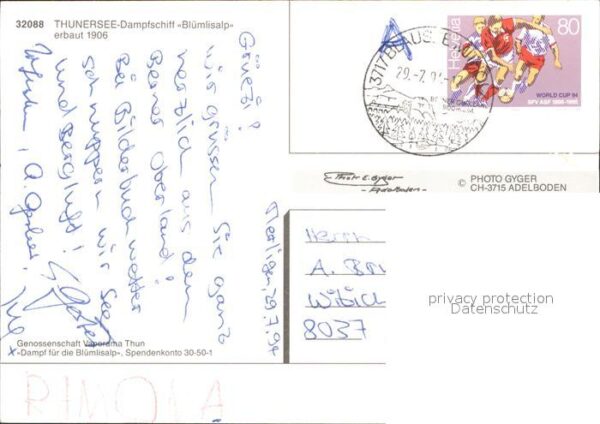 32088 THUNERSEE-Dampfschiff «Blümlisalp»
erbaut 1906
Grüezi!
Wir grüssen Sie ganz
herzlich aus dem
Berner Oberland!
Bei Bilderbuchwetter
schnuppern wir See-
und Bergluft!
Merligen, 29.7.94
Genossenschaft Vaporama Thun
«Dampf für die Blümlisalp», Spendenkonto 30-50-1
A
3717 BLAUSEE
29.-7.94
Helvetia
80
WORLD CUP 94
SFV ASF 1895-1995
Photo E. Gyger
-Adelboden-
© PHOTO GYGER
CH-3715 ADELBODEN
Herrn
A.
8037
privacy protection
Datenschutz
RIMOLA